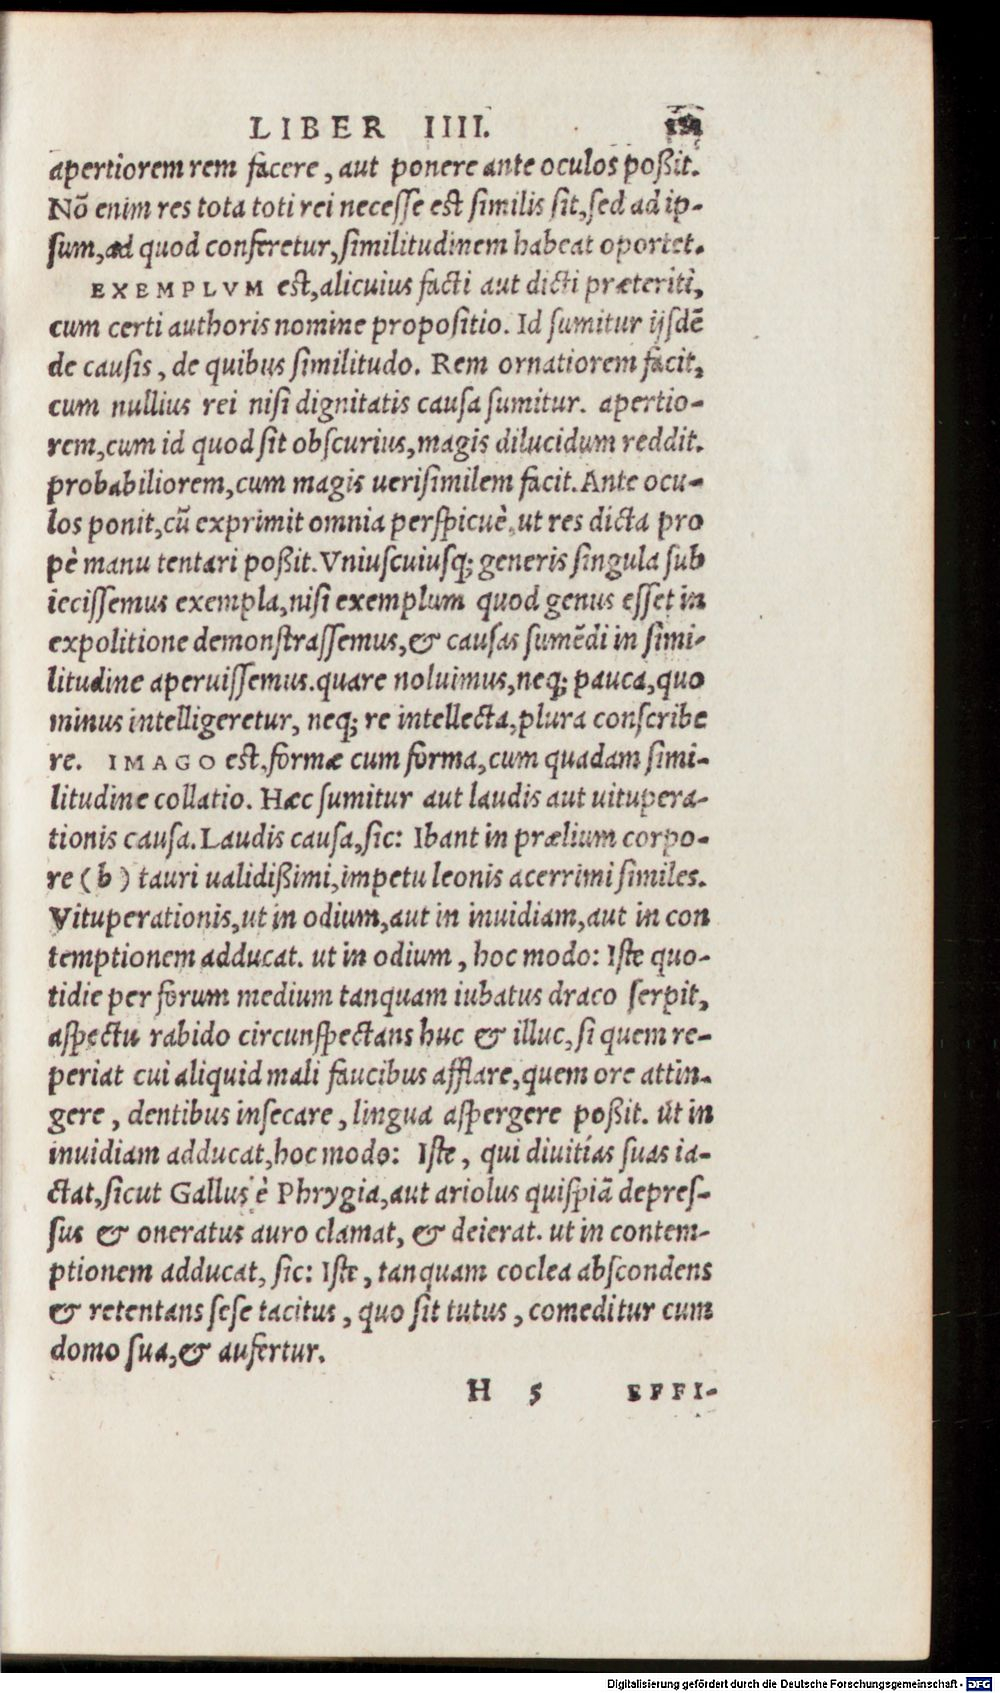 LIBER IIII.
apertiorem rem facere, aut ponere ante oculos poßit.
Nõ enim res tota toti rei necesse est similis sit, sed ad ip-
sum, ad quod conferetur, similitudinem habeat oportet.
EXEMPLVM est, alicuius facti aut dicti præteriti,
cum certi authoris nomine propositio. Id sumitur ijsdẽ
de causis, de quibus similitudo. Rem ornatiorem facit,
cum nullius rei nisi dignitatis causa sumitur. apertio-
rem, cum id quod sit obscurius, magis dilucidum reddit.
probabiliorem, cum magis uerisimilem facit. Ante ocu-
los ponit, cũ exprimit omnia perspicuè, ut res dicta pro
pè manu tentari poßit. Vniuscuiusq; generis singula sub
iecissemus exempla, nisi exemplum quod genus esset in
expolitione demonstrassemus, & causas sumẽdi in simi-
litudine aperuissemus. quare noluimus, neq; pauca, quo
minus intelligeretur, neq; re intellecta, plura conscribe
re. IMAGO est, formæ cum forma, cum quadam simi-
litudine collatio. Hæc sumitur aut laudis aut uitupera-
tionis causa. Laudis causa, sic: Ibant in prælium corpo-
re (b) tauri ualidißimi, impetu leonis acerrimi similes.
Vituperationis, ut in odium, aut in inuidiam, aut in con
temptionem adducat. ut in odium, hoc modo: Iste quo-
tidie per forum medium tanquam iubatus draco serpit,
aspectu rabido circunspectans huc & illuc, si quem re-
periat cui aliquid mali faucibus afflare, quem ore attin-
gere, dentibus insecare, lingua aspergere poßit. ut in
inuidiam adducat, hoc modo: Iste, qui diuitias suas ia-
ctat, sicut Gallus è Phrygia, aut ariolus quispiã depres-
sus & oneratus auro clamat, & deierat. ut in contem-
ptionem adducat, sic: Iste, tanquam coclea abscondens
& retentans sese tacitus, quo sit tutus, comeditur cum
domo sua, & aufertur.
H 5 EFFI-
Digitalisierung gefördert durch die Deutsche Forschungsgemeinschaft - DFG